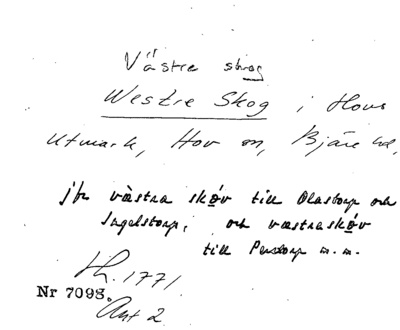 Västre skog
Westre Skog i Hovs
Utmark, Hov sn, Bjäre hd.
jfr västra skǿv till Olastorp och
Ingelstorp, och västraskǿv
till Perstorp m.m.
Lh. 1771.
Nr 7098.
Akt 2